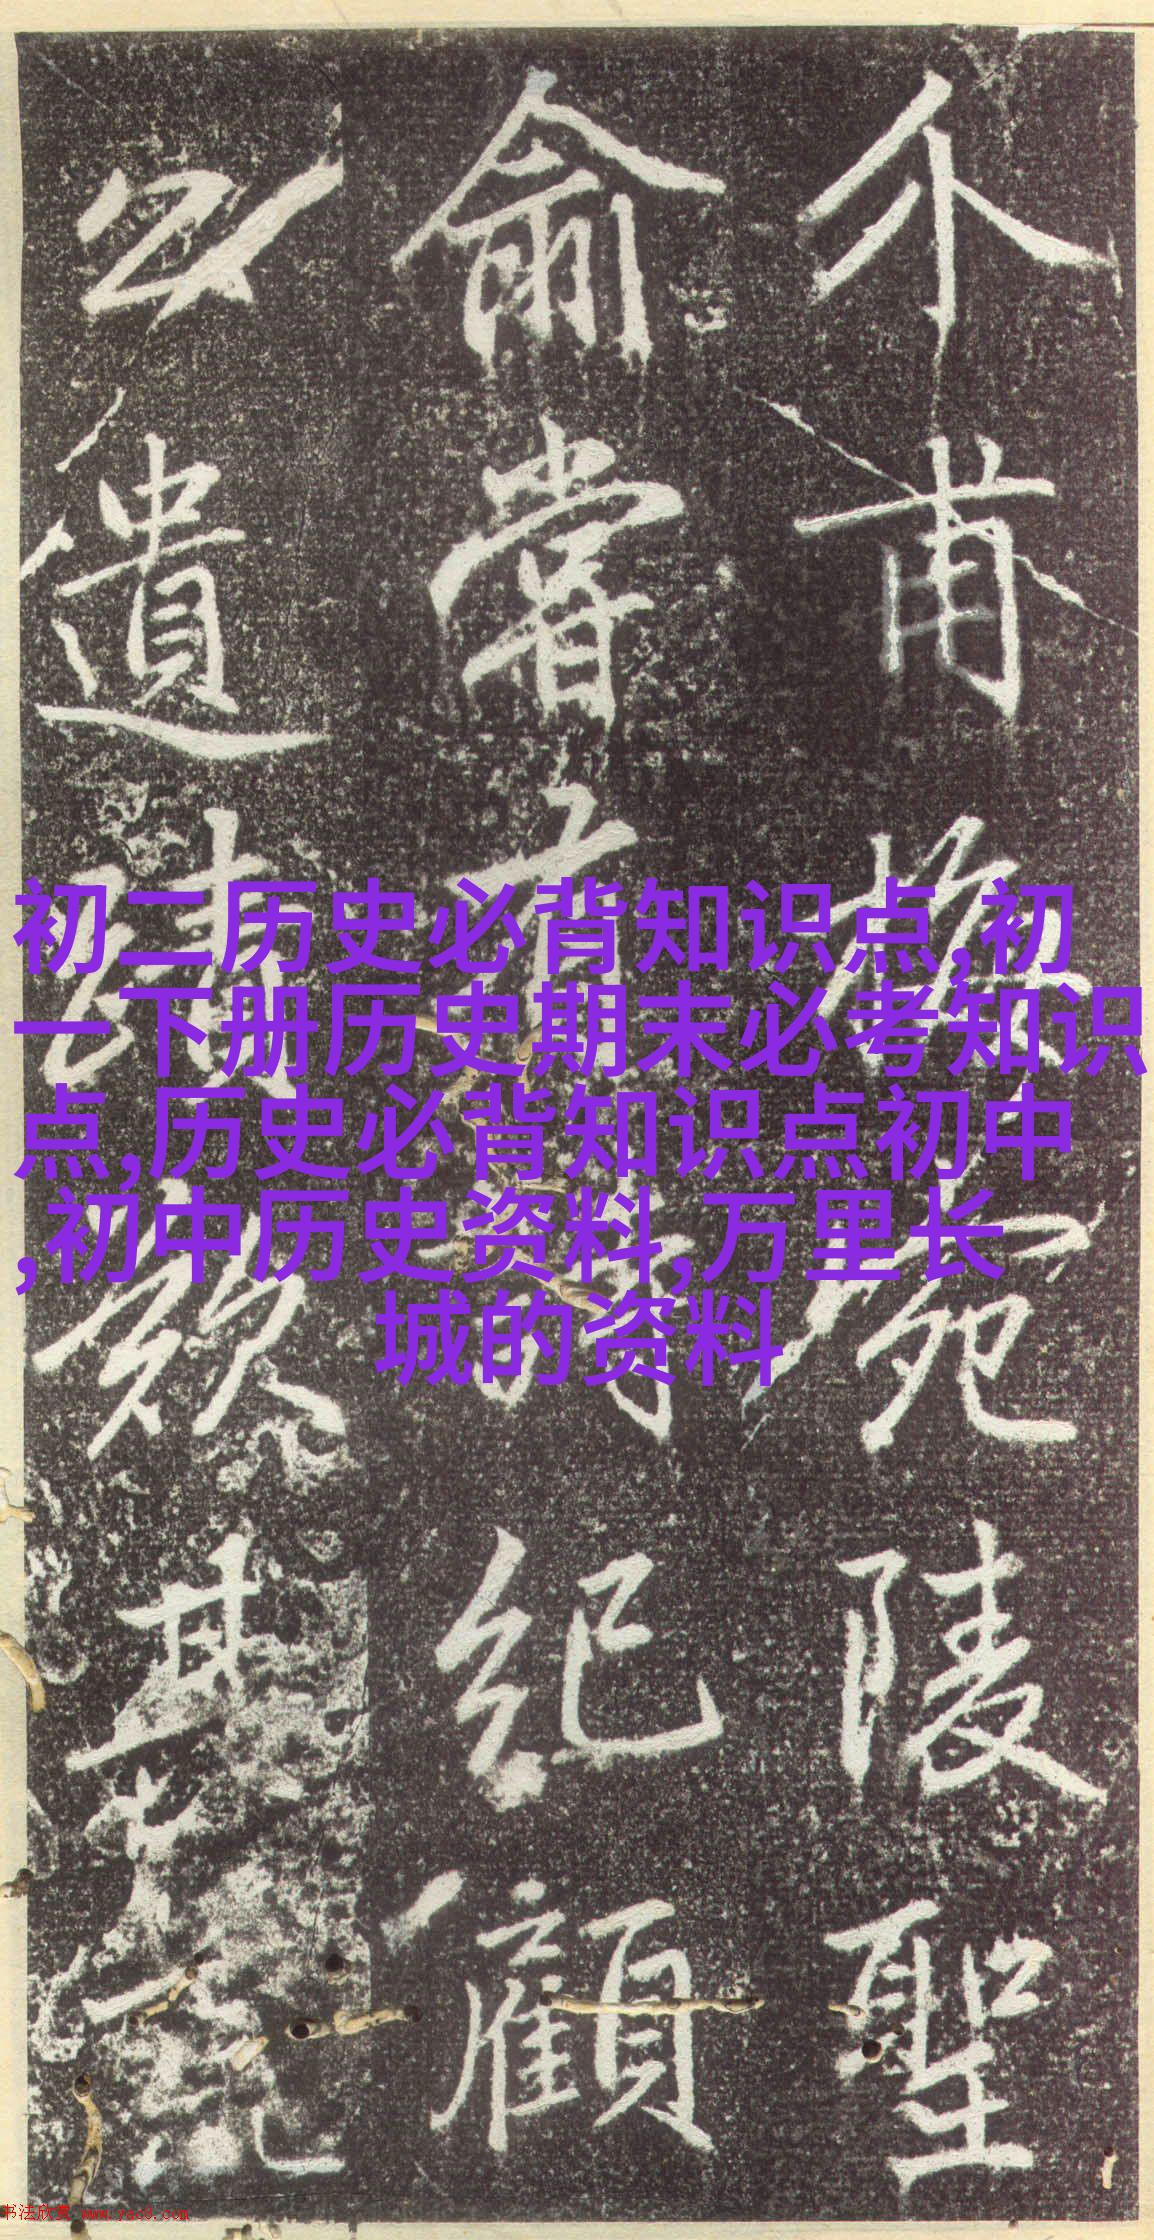 介甫楙宛陵聖
俞嘗有詩紀顧
公遺蹟

初二历史必背知识点,初
一下册历史期末必考知识
点,历史必背知识点初中
,初中历史资料,万里长
城的资料
书法欣赏 www.yac8.com